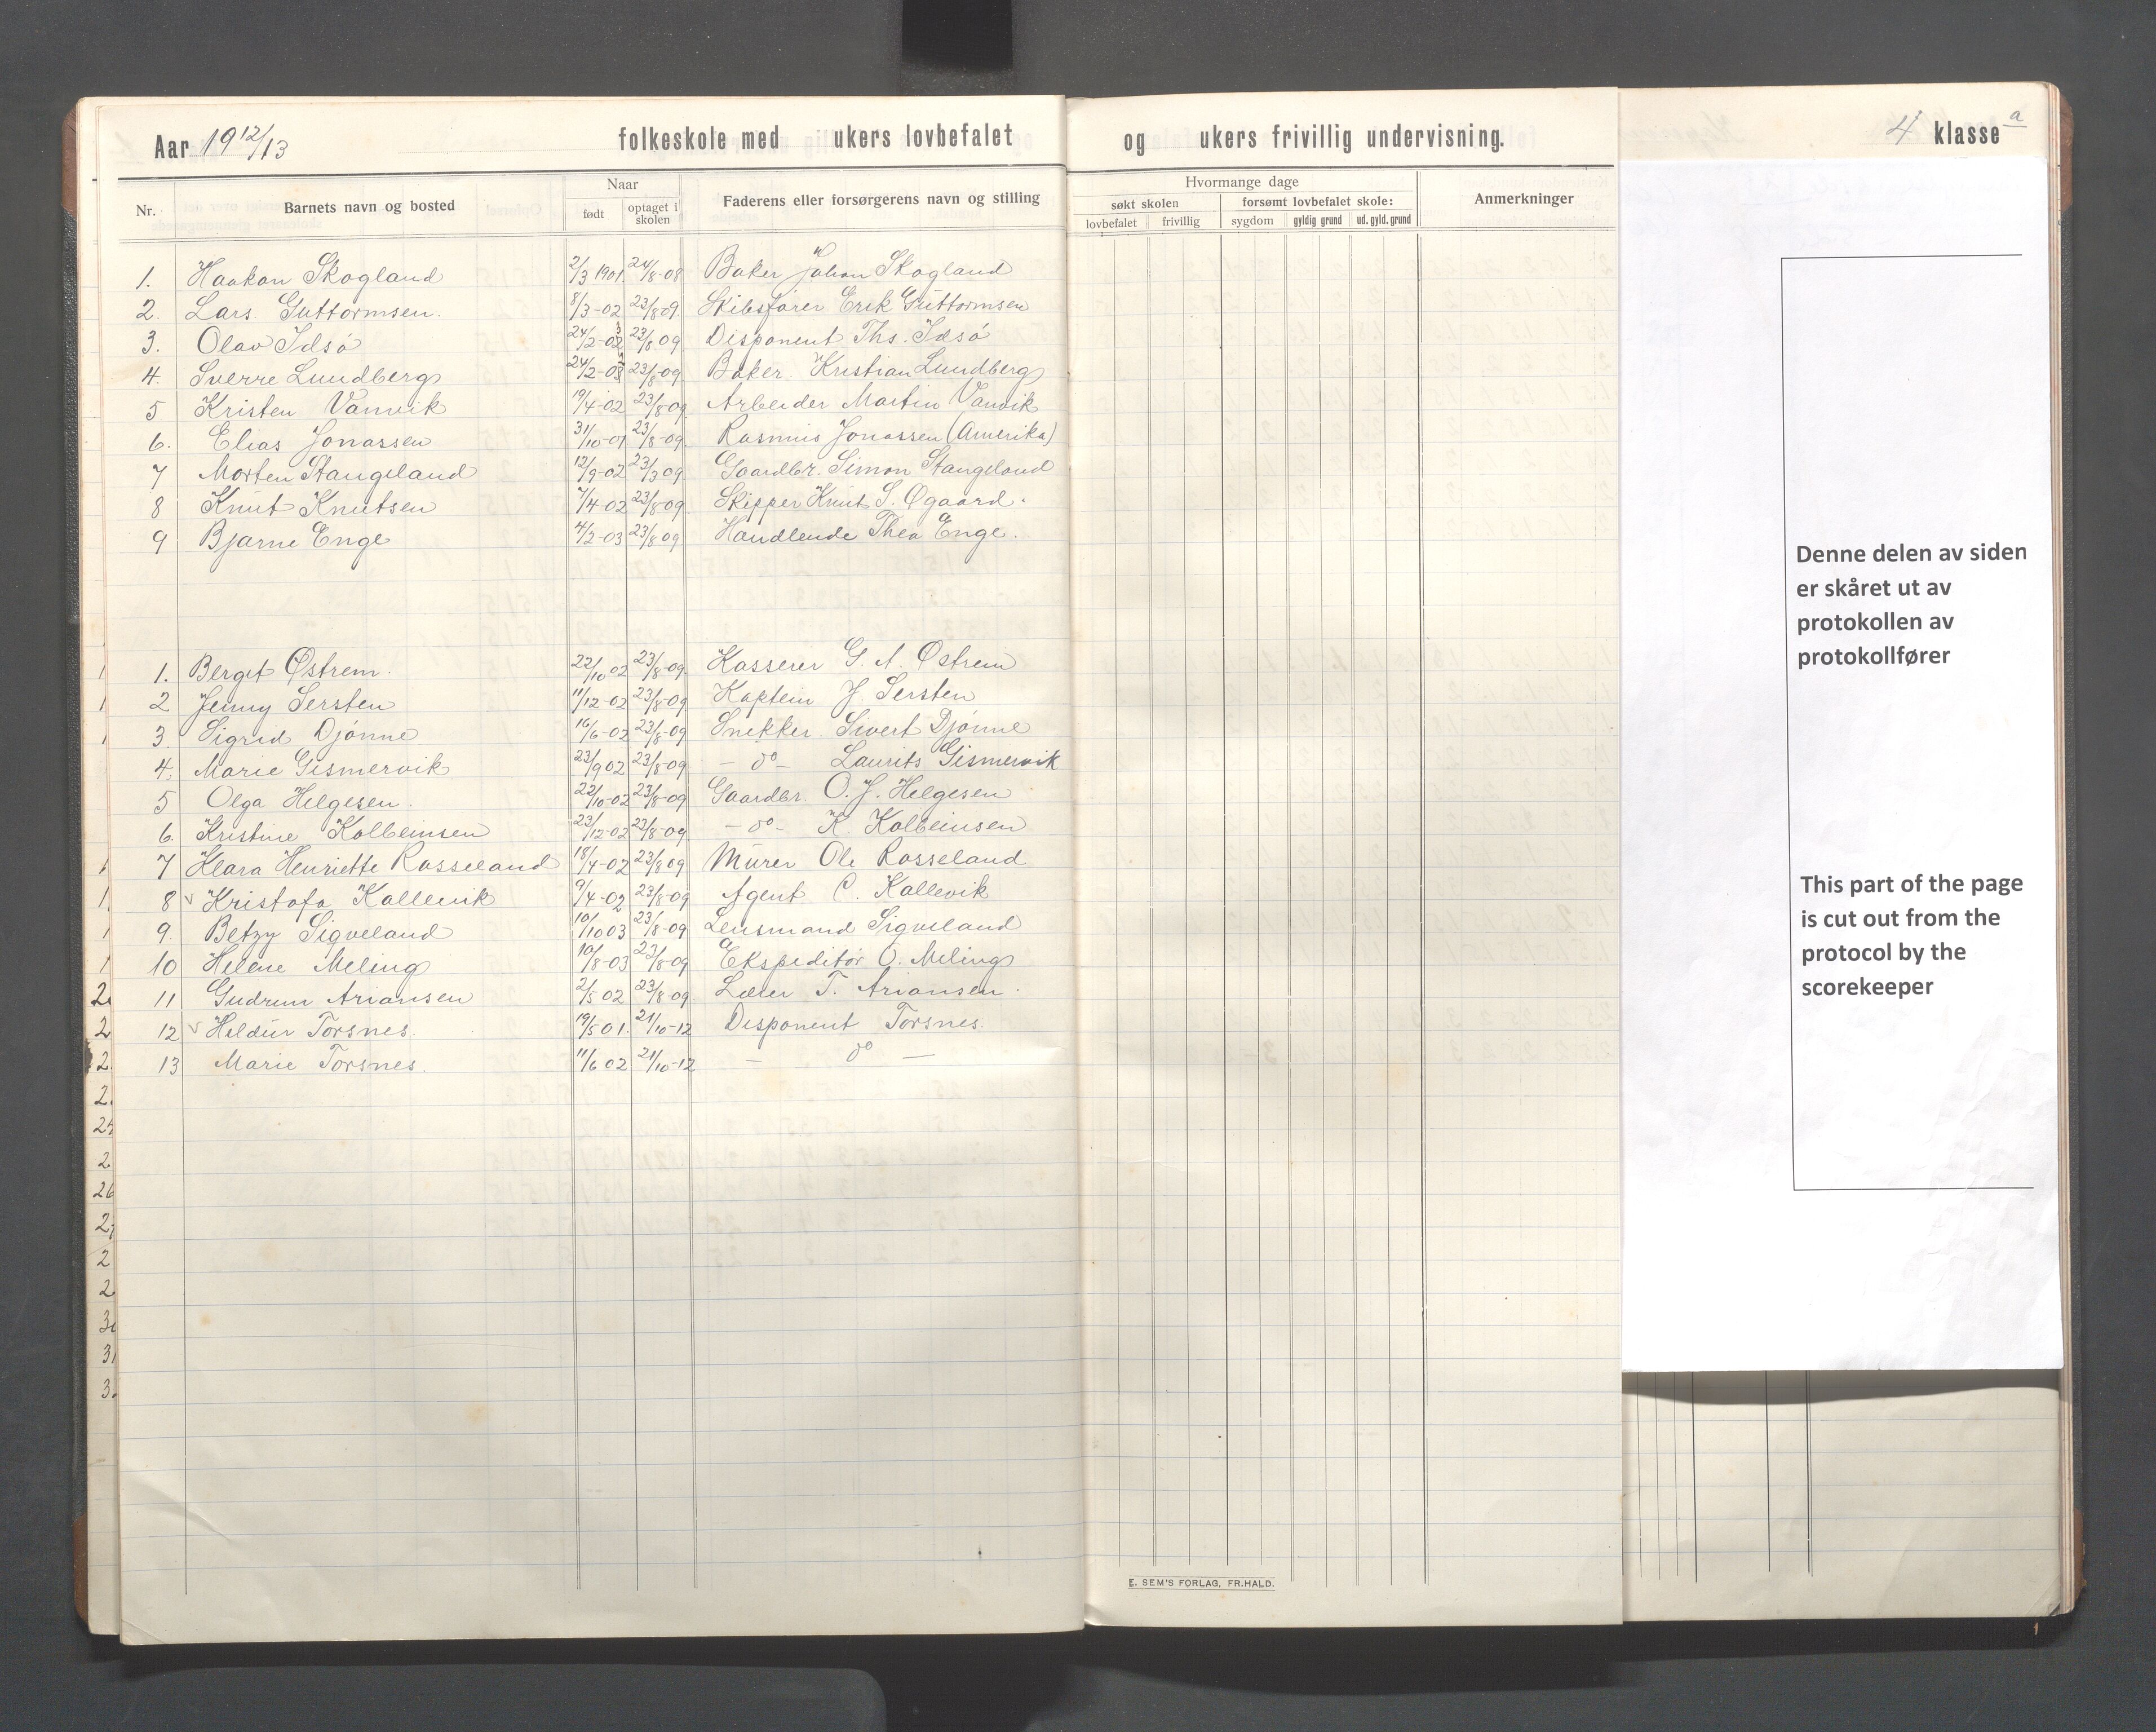 Aar 19 12/13 folkeskole med ukers lovbefalet og ukers frivillig undervisning. 4 klasse a
Nr. Barnets navn og bosted Naar født optaget i skolen Faderens eller forsørgerens navn og stilling Hvormange dage søkt skolen lovbefalet frivillig forsømt lovbefalet skole: sygdom gyldig grund ud. gyld. grund Anmerkninger
1. Haakon Skogland 2/3 1901 24/8-08 Baker Johan Skogland
2. Lars Guttormsen. 8/3-02 23/8 09. Skibsfører Erik Guttormsen
3. Olav Idsø 24/2-02 23/8 09 Disponent Ths. Idsø
4. Sverre Lundberg 24/2-03 23/8-09 Baker. Kristian Lundberg
5 Kristen Vanvik 19/4-02 23/8-09 Arbeider Martin Vanvik
6. Elias Jonassen 31/10-01 23/8-09. Rasmus Jonassen (Amerika)
7 Morten Stangeland 12/9-02 23/3 09 Gaardbr. Simon Stangeland
8 Knut Knutsen 7/4-02 23/8-09 Skipper Knut S. Øgaard.
9 Bjarne Enge 4/2-03 23/8 09 Handlende Thea Enge.
1. Berget Østrem. 22/10 02 23/8-09. Kasserer G. A. Østrem
2 Jenny Sersten 11/12-02 23/8-09 Kaptein J. Sersten
3. Sigrid Djønne 16/6-02 23/8-09 Snekker Sivert Djønne
4. Marie Gismervik 23/9 02 23/8-09 - do - Laurits Gismervik
5 Olga Helgesen. 22/10-02 23/8-09 Gaardbr. O. J. Helgesen
6. Kristine Kolbeinsen 23/12-02 23/8-09 - do - K. Kolbeinsen
7 Klara Henriette Rosseland 18/4-02 23/8 09 Murer Ole Rosseland
8 v Kristofa Kallevik 9/4-02 23/8-09 Agent C. Kallevik
9. Betzy Sigveland 10/10 03 23/8-09 Lensmand Sigveland
10 Helene Meling 10/8-03 23/8-09 Ekspeditør O. Meling
11 Gudrun Ariansen 2/5 02 23/8-09. Lærer T. Ariansen.
12 v Heldur Torsnes. 19/5 01. 21/10-12 Disponent Torsnes.
13 Marie Torsnes. 11/6 02 21/10-12 - do -
Denne delen av siden
er skåret ut av
protokollen av
protokollfører
This part of the page
is cut out from the
protocol by the
scorekeeper
E. SEM'S FORLAG, FR.HALD.